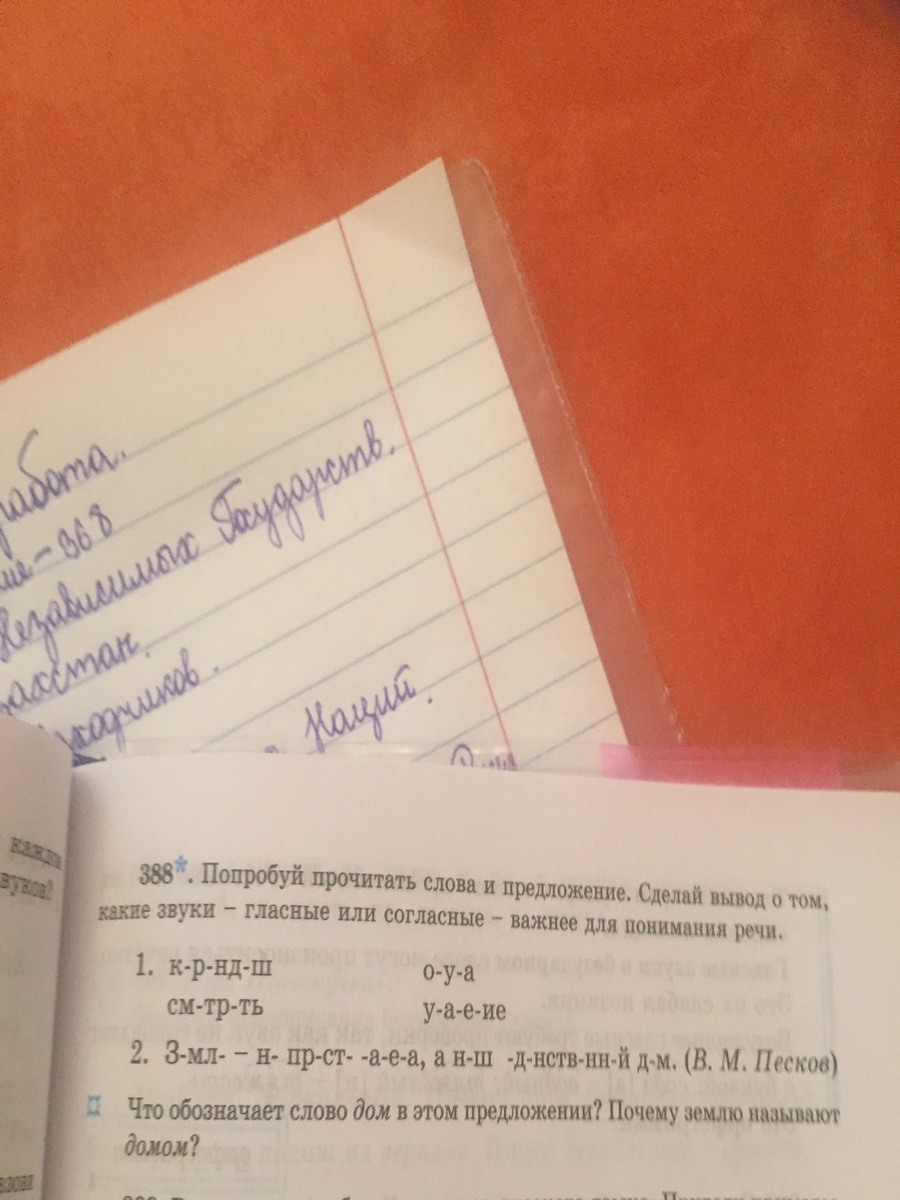 работа.
368
Независимых Государств.
Наций.
388*. Попробуй прочитать слова и предложение. Сделай вывод о том,
какие звуки – гласные или согласные – важнее для понимания речи.
1. к-р-нд-ш о-у-а
см-тр-ть у-а-е-ие
2. З-мл- – н- пр-ст- -а-е-а, а н-ш -д-нств-нн-й д-м. (В. М. Песков)
Что обозначает слово дом в этом предложении? Почему землю называют
домом?